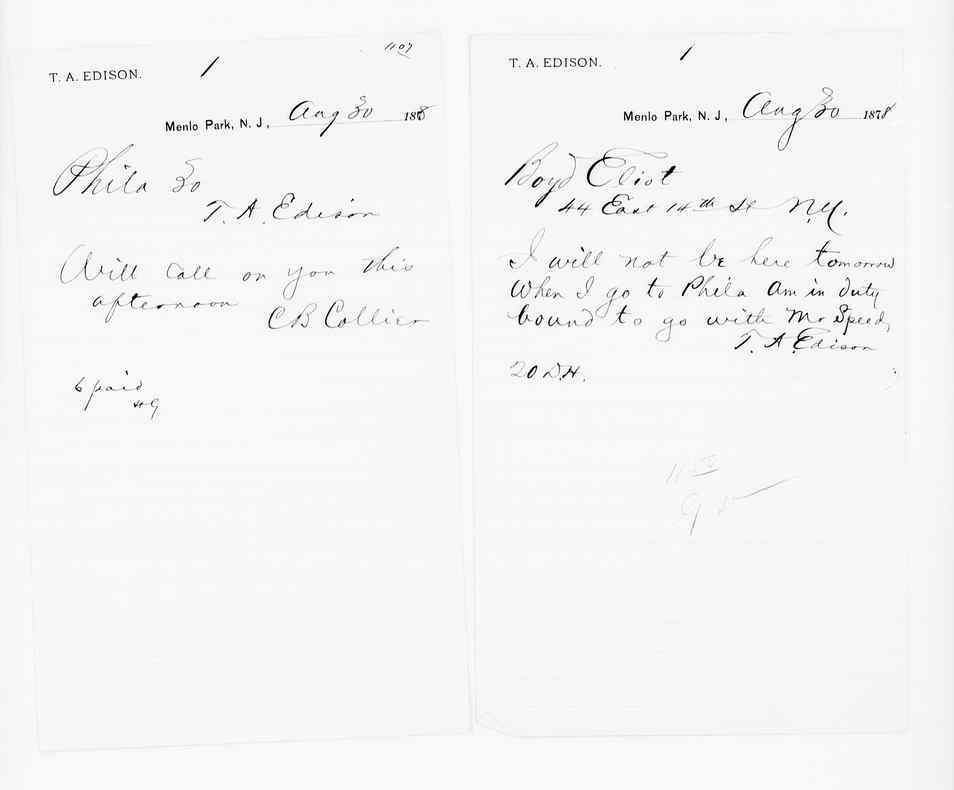 1107
T. A. EDISON. 1
Menlo Park, N. J., Aug 30 1878
Phila 30
T. A. Edison
Will call on you this
afternoon
CB Collier
6 paid
HG
T. A. EDISON. 1
Menlo Park, N. J., Aug 30 1878
Boyd Eliot
44 East 14th St N.Y.
I will not be here tomorrow
When I go to Phila Am in duty
bound to go with Mr Speed,
T. A. Edison
20 D.H.